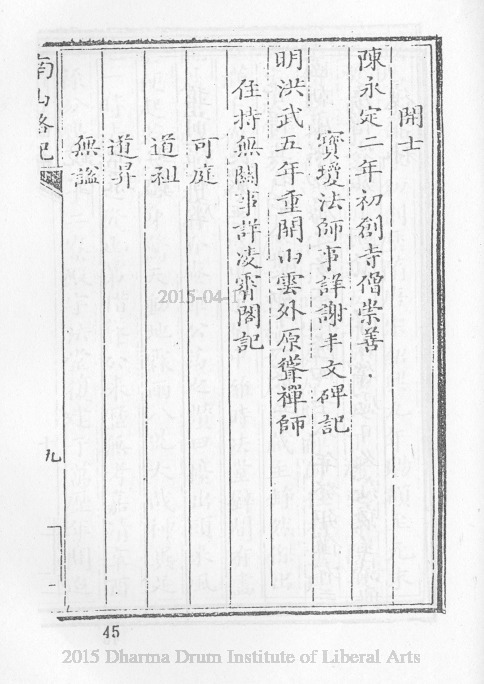 開士
陳永定二年初創寺僧崇善.
寶瓊法師事詳謝丰文碑記
明洪武五年重開山雲外原聲禪師
住持無關事詳凌霄閣記
可庭
道祖
道昇
無謐
南山畧記
九
45
2015-04-1
2015 Dharma Drum Institute of Liberal Arts